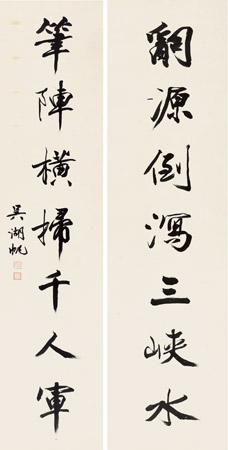 𤔲源倒瀉三峽水
筆陣橫掃千人軍
吳湖帆